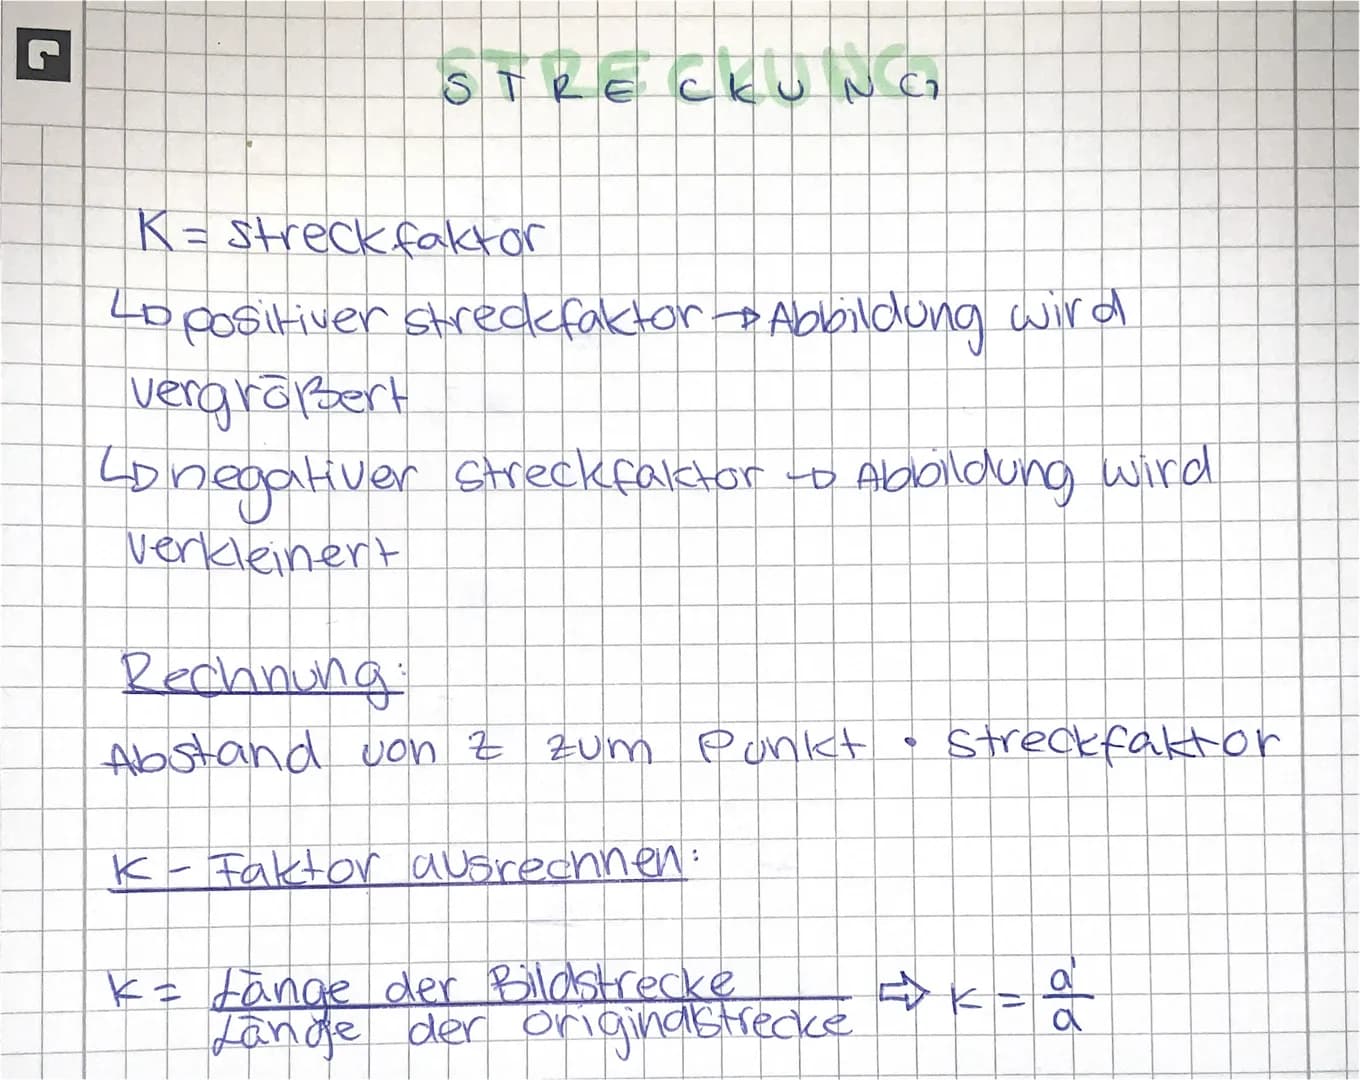 STRECKUNG
K = streckfaktor
↳ positiver streckfaktor → Abbildung wird
vergrößert
↳ negativer streckfaktor → Abbildung wird
verkleinert
Rechnung:
Abstand von Z zum Punkt · streckfaktor
K - Faktor ausrechnen:
k = Länge der Bildstrecke / Länge der Originalstrecke ⇒ k = a' / a